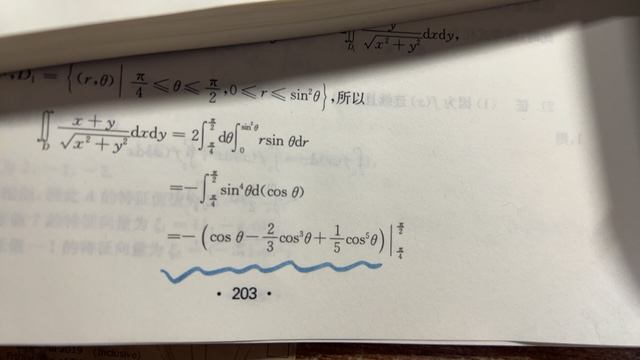 ∬_{D₁} y/√(x²+y²) dxdy,
D₁ = {(r,θ) | π/4 ≤ θ ≤ π/2, 0 ≤ r ≤ sin²θ}, 所以
∬_D (x+y)/√(x²+y²) dxdy = 2∫_{π/4}^{π/2} dθ ∫_0^{sin²θ} r sin θdr
= −∫_{π/4}^{π/2} sin⁴θd(cos θ)
= −(cos θ − 2/3 cos³θ + 1/5 cos⁵θ) |_{π/4}^{π/2}
· 203 ·